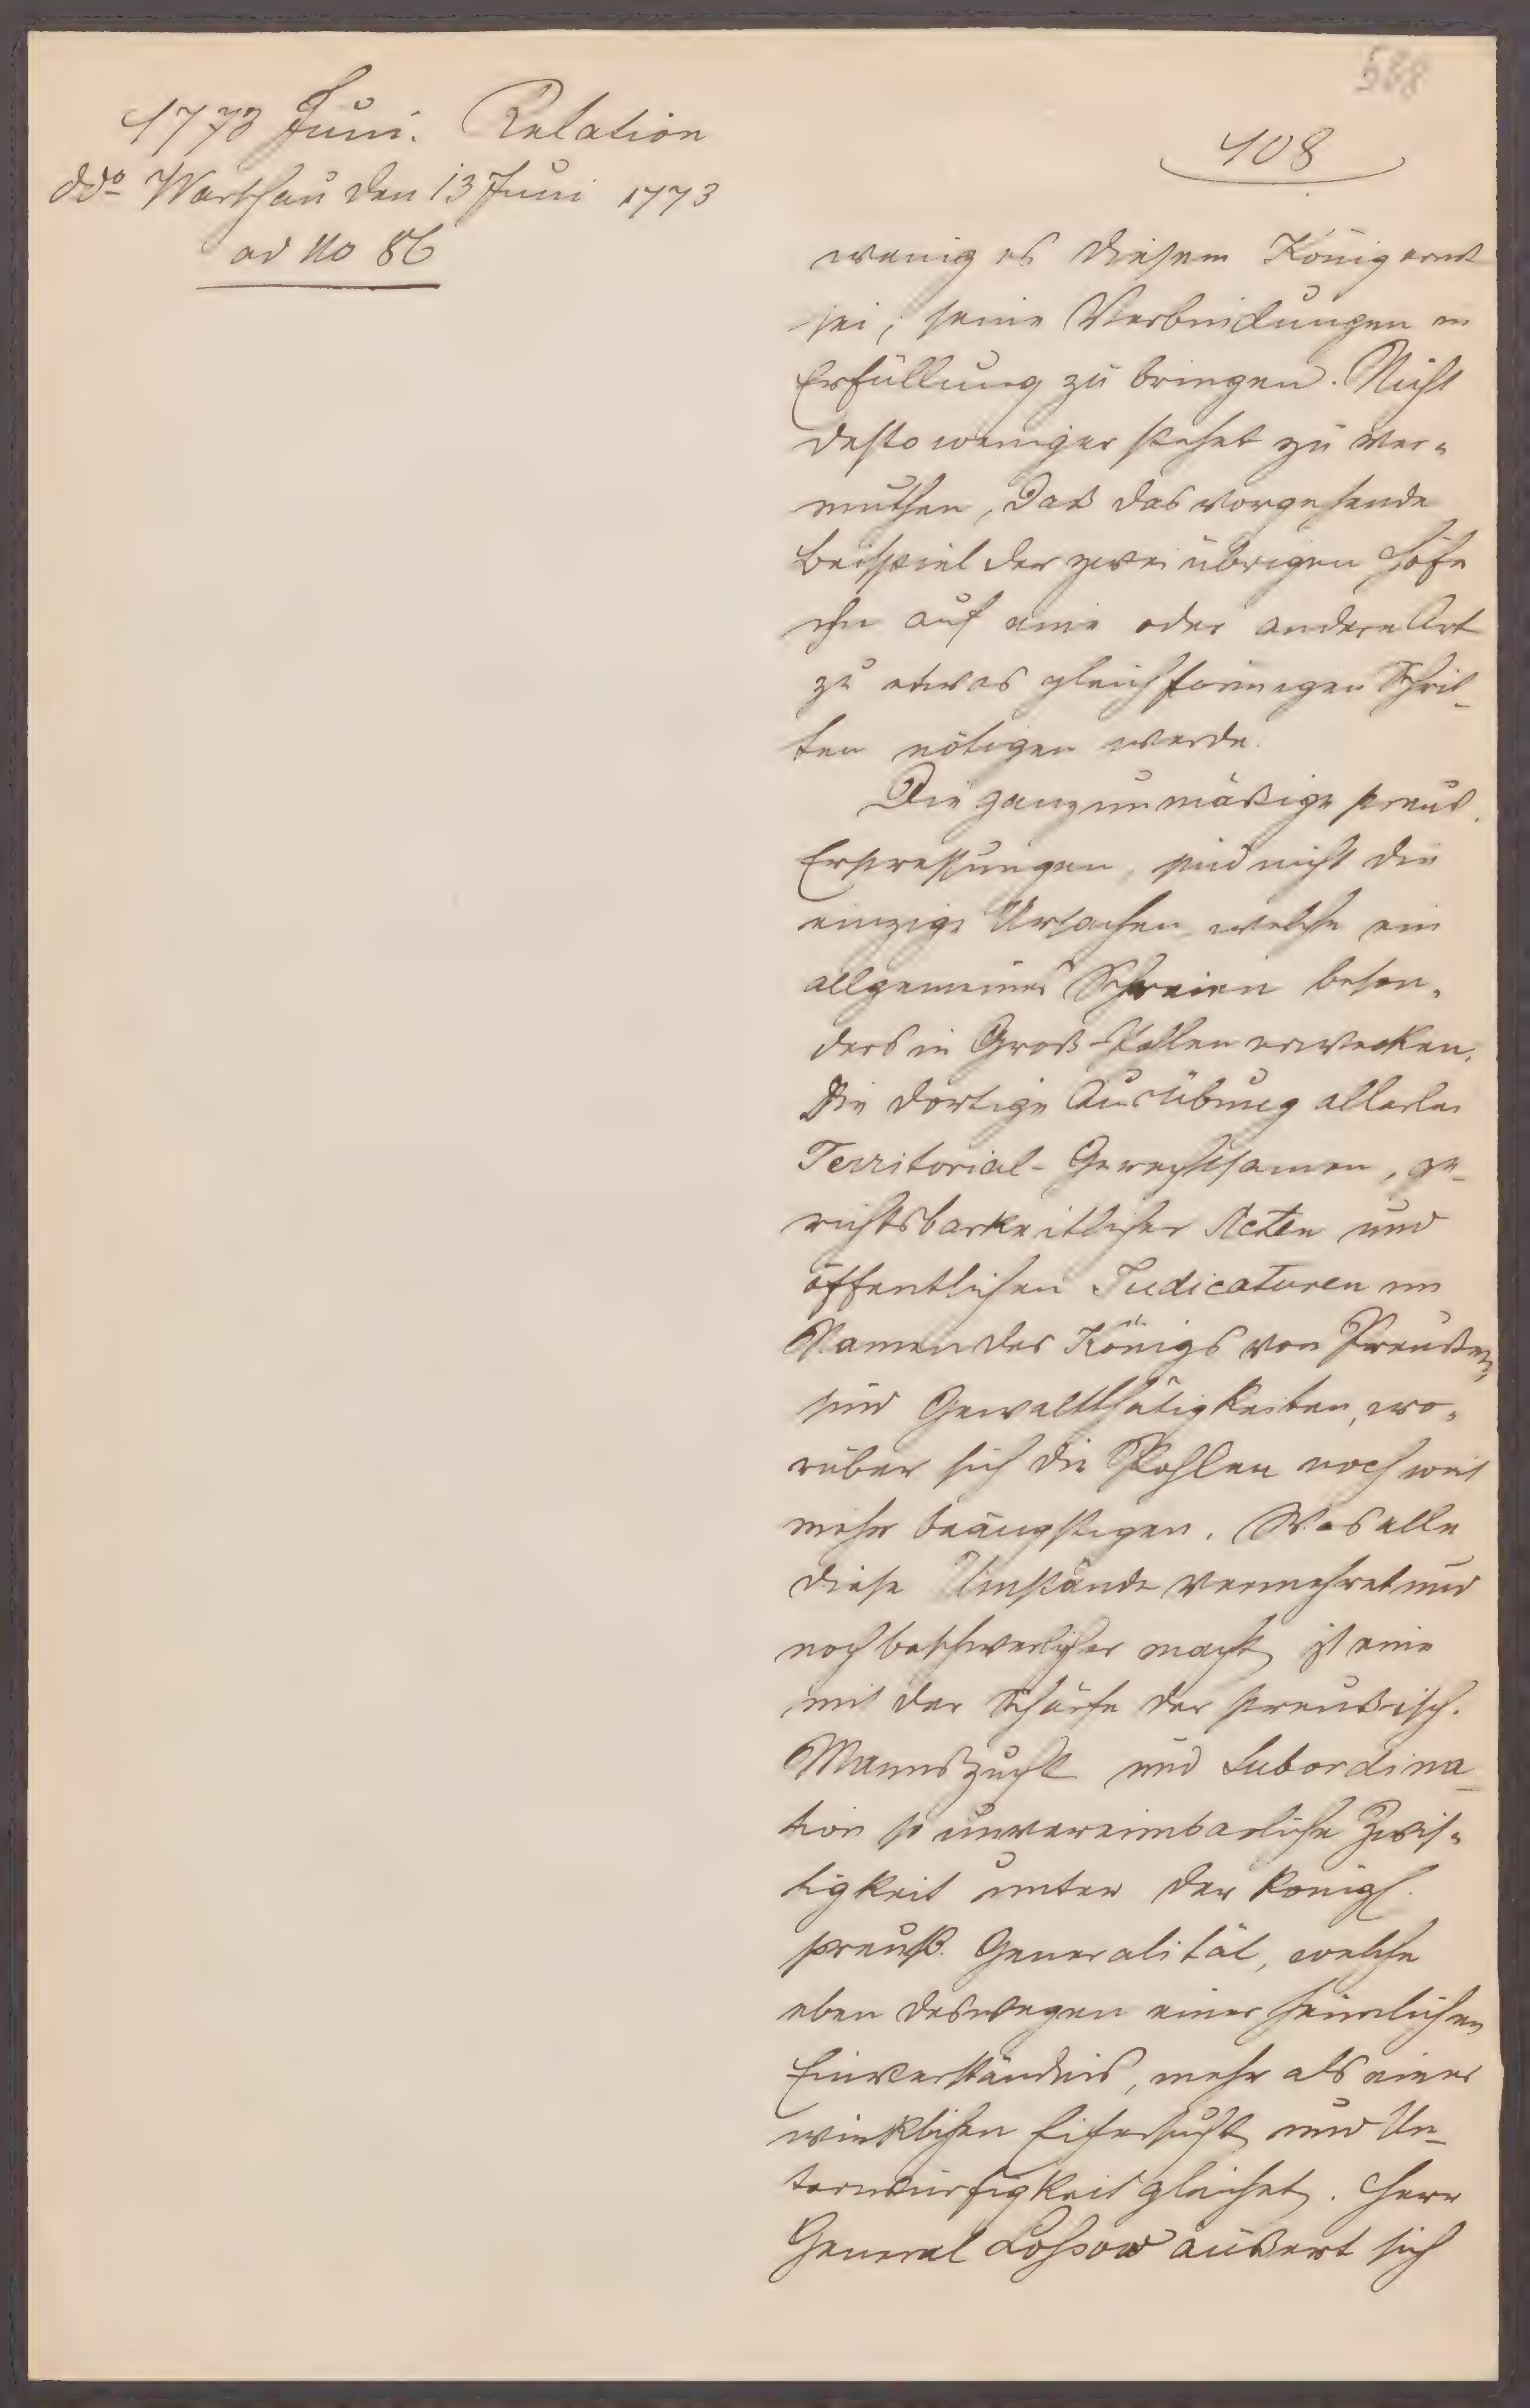 588
1773 Juni. Relation
ddo Warschau den 13 Juni 1773
ad No 86
108
wenig es diesem König ernst
sei, seine Verbindungen in
Erfüllung zu bringen. Nicht
destoweniger stehet zu ver-
muthen, daß das vorgehende
Beispiel der zwei übrigen Höfe
ihn auf eine oder andere Art
zu etwas gleichförmigen Schrit-
ten nötigen werde.
Die ganz unmäßige preuß.
Erpressungen, sind nicht die
einzige Ursachen, welche ein
allgemeines Schreien beson-
ders in Groß-Pollen erwecken.
Die dortige Ausübung allerlei
Territorial-Gerechtsamen, ge-
richtsbarkeitlicher Acten und
öffentlichen Judicaturen im
Namen des Königs von Preußen,
sind Gewaltthätigkeiten, wo-
rüber sich die Pohlen noch weit
mehr beängstigen. Was alle
diese Umstände vermehret und
noch beschwerlicher macht, ist eine
mit der Schärfe der preußisch.
Mannszucht und Subordina-
tion so unvereinbarliche Zwis-
tigkeit unter der königl.
preuß. Generalität, welche
eben deswegen einer heimlichen
Einverständnis, mehr als einer
wirklichen Eifersucht und Un-
terwürfigkeit gleichet. Herr
General Loßow äußert sich